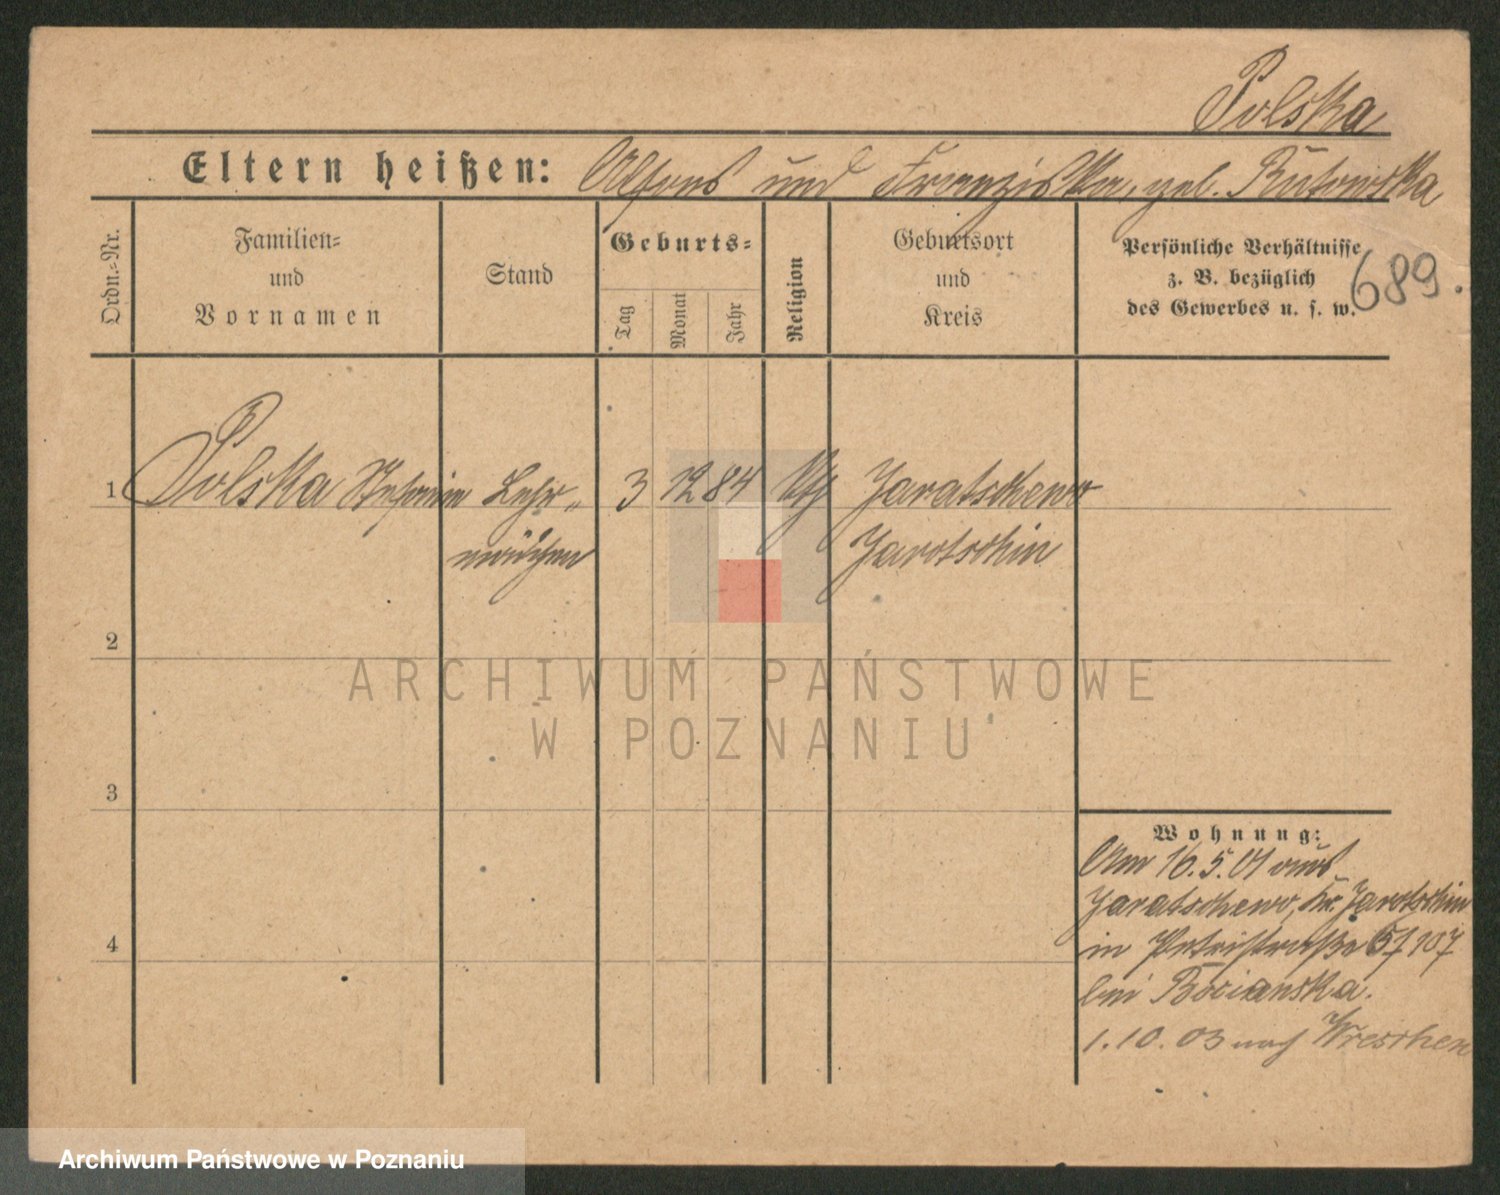 Polska
Eltern heißen: Alfons und Franziska, geb. Rutowska
Ordn.-Nr.
Familien-
und
Vornamen
Stand
Geburts-
Tag
Monat
Jahr
Religion
Geburtsort
und
Kreis
Persönliche Verhältnisse
z. B. bezüglich
des Gewerbes u. s. w.
689.
1 Polska Stefanie Lehr- 3 12 84 kth Jaratschewo
mädchen Jarotschin
2
3
4
Wohnung:
Am 16.5.01 aus
Jaratschewo, Kr. Jarotschin
in Petristraße 107
bei Bocianska.
1.10.03 nach Wreschen
ARCHIWUM PAŃSTWOWE
W POZNANIU
Archiwum Państwowe w Poznaniu